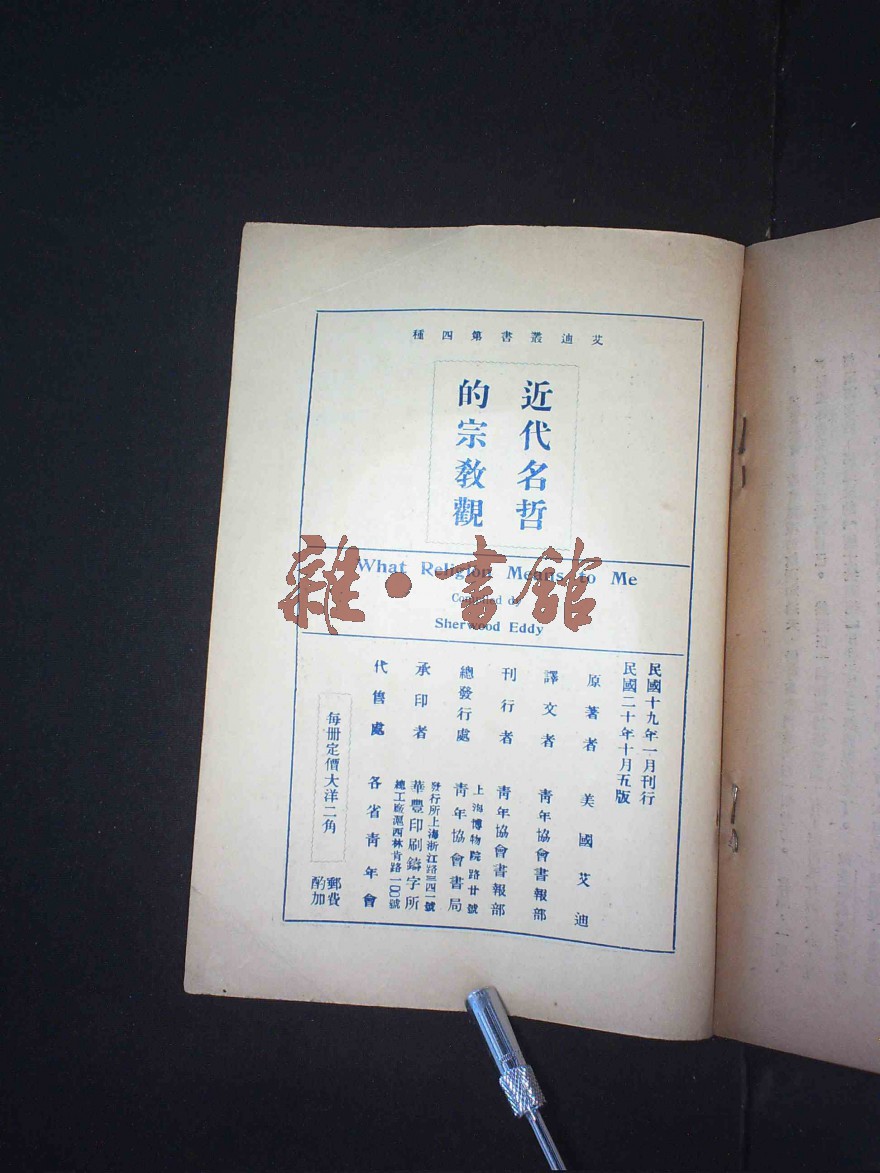 艾迪叢書第四種
近代名哲
的宗教觀
What Religion Means to Me
Compiled by
Sherwood Eddy
民國十九年一月刊行
民國二十年十月五版
原著者 美國艾迪
譯文者 青年協會書報部
刊行者 青年協會書報部
總發行處 上海博物院路廿號
青年協會書局
承印者 發行所上海浙江路三四一號
華豐印刷鑄字所
總工廠滬西林肯路一〇〇號
代售處 各省青年會
每冊定價大洋二角
郵費
酌加
雜·書館